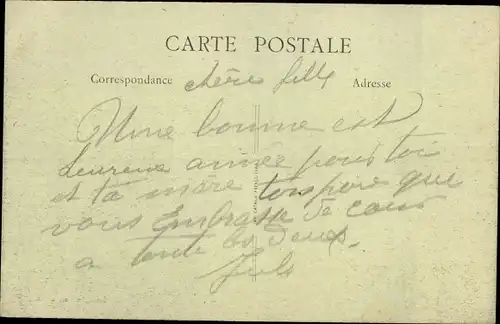 CARTE POSTALE
Correspondance chère fille Adresse
Une bonne est
heureuse année pour toi
et ta mère ton père que
vous Embrasse de cœur
a toute les deux.
Jules